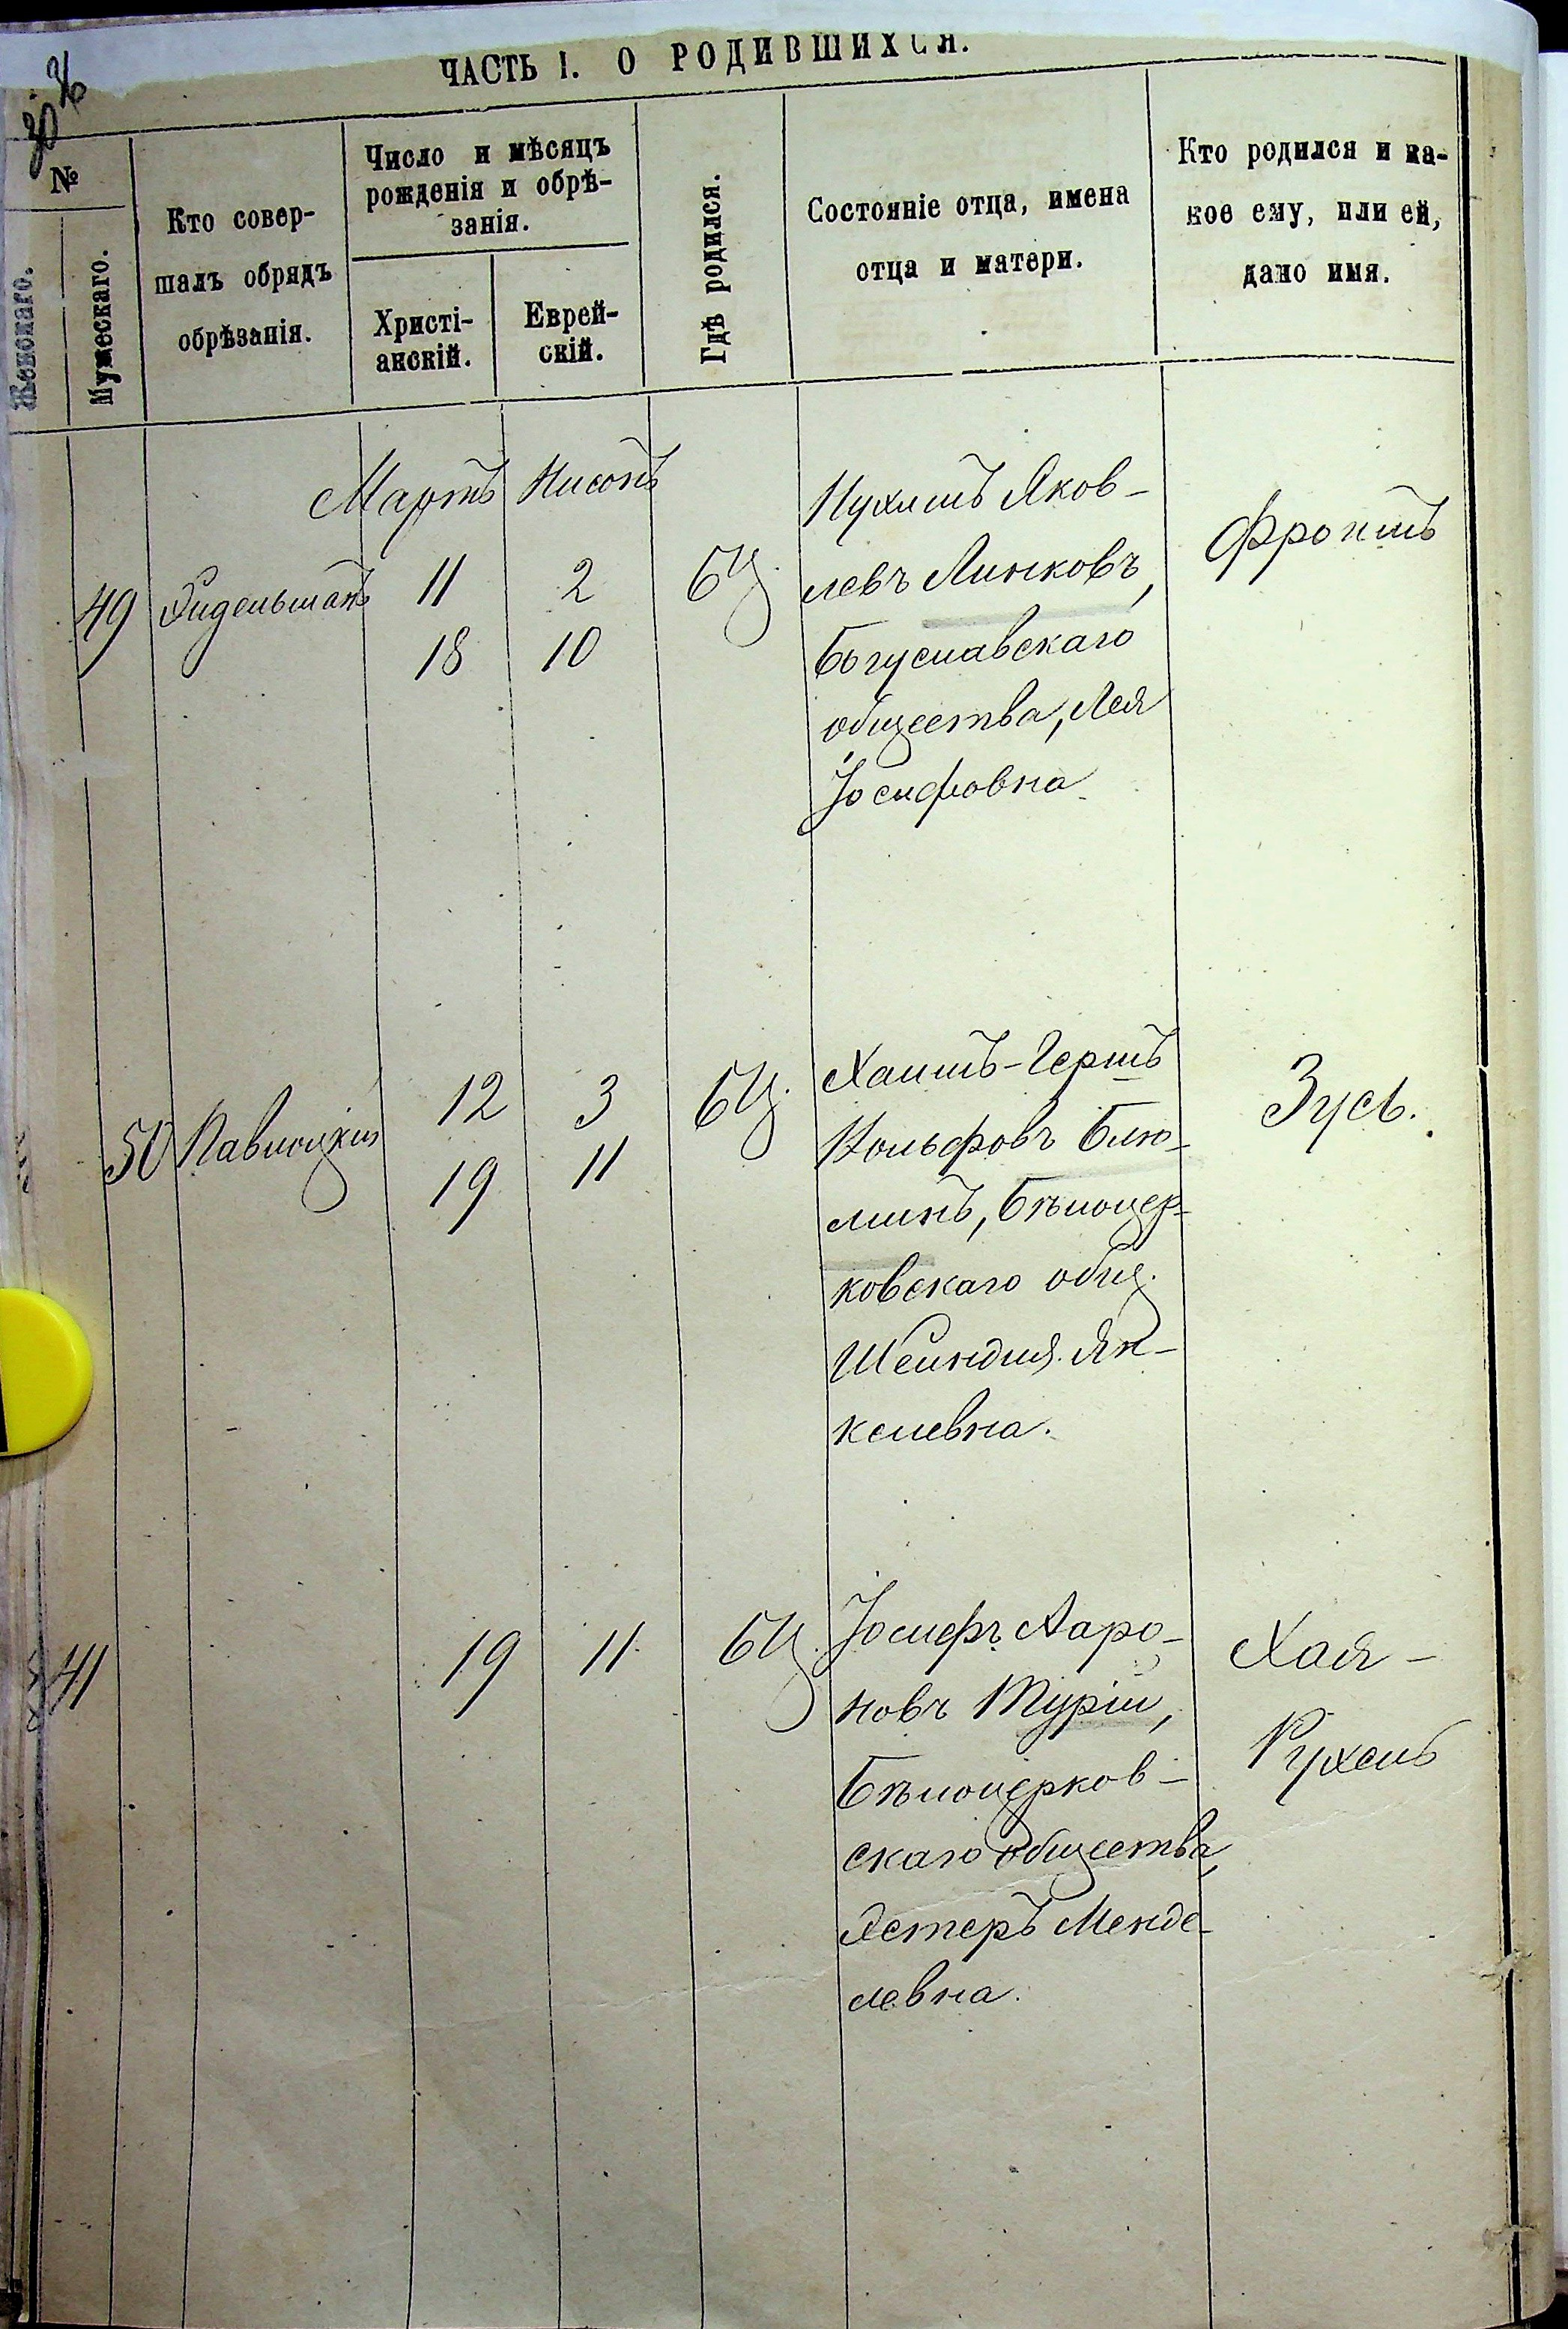 ЧАСТЬ I. О РОДИВШИХСЯ.
№
Женскаго.
Мужескаго.
Кто совер-
шалъ обрядъ
обрѣзанія.
Число и мѣсяцъ
рожденія и обрѣ-
занія.
Христі-
анскій.
Еврей-
скій.
Гдѣ родился.
Состояніе отца, имена
отца и матери.
Кто родился и ка-
кое ему, или ей,
дано имя.
Мартъ Нисонъ
49
11 2
18 10
БЦ.
Нухимъ Яков-
левъ Линковъ,
Богуславскаго
общества, Лея
Іосифовна
Фроимъ
50 Павлоцкій
12 3
19 11
БЦ.
Хаимъ-Гершъ
Вольфовъ Блю-
минъ, Бѣлоцер-
ковскаго общ.
Шейндля Ян-
келевна.
Зусь.
41
19 11
БЦ.
Іосифъ Ааро-
новъ Турій,
Бѣлоцерков-
скаго общества,
Эстеръ Менде-
левна.
Хая-
Рухель